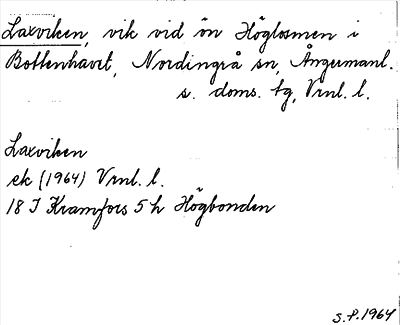 Laxviken, vik vid ön Höglosmen i
Bottenhavet, Nordingrå sn, Ångermanl.
s. doms. tg, Vrnl. l.
Laxviken
ek (1964) Vrnl. l.
18 I Kramfors 5 h Högbonden
S.P. 1964